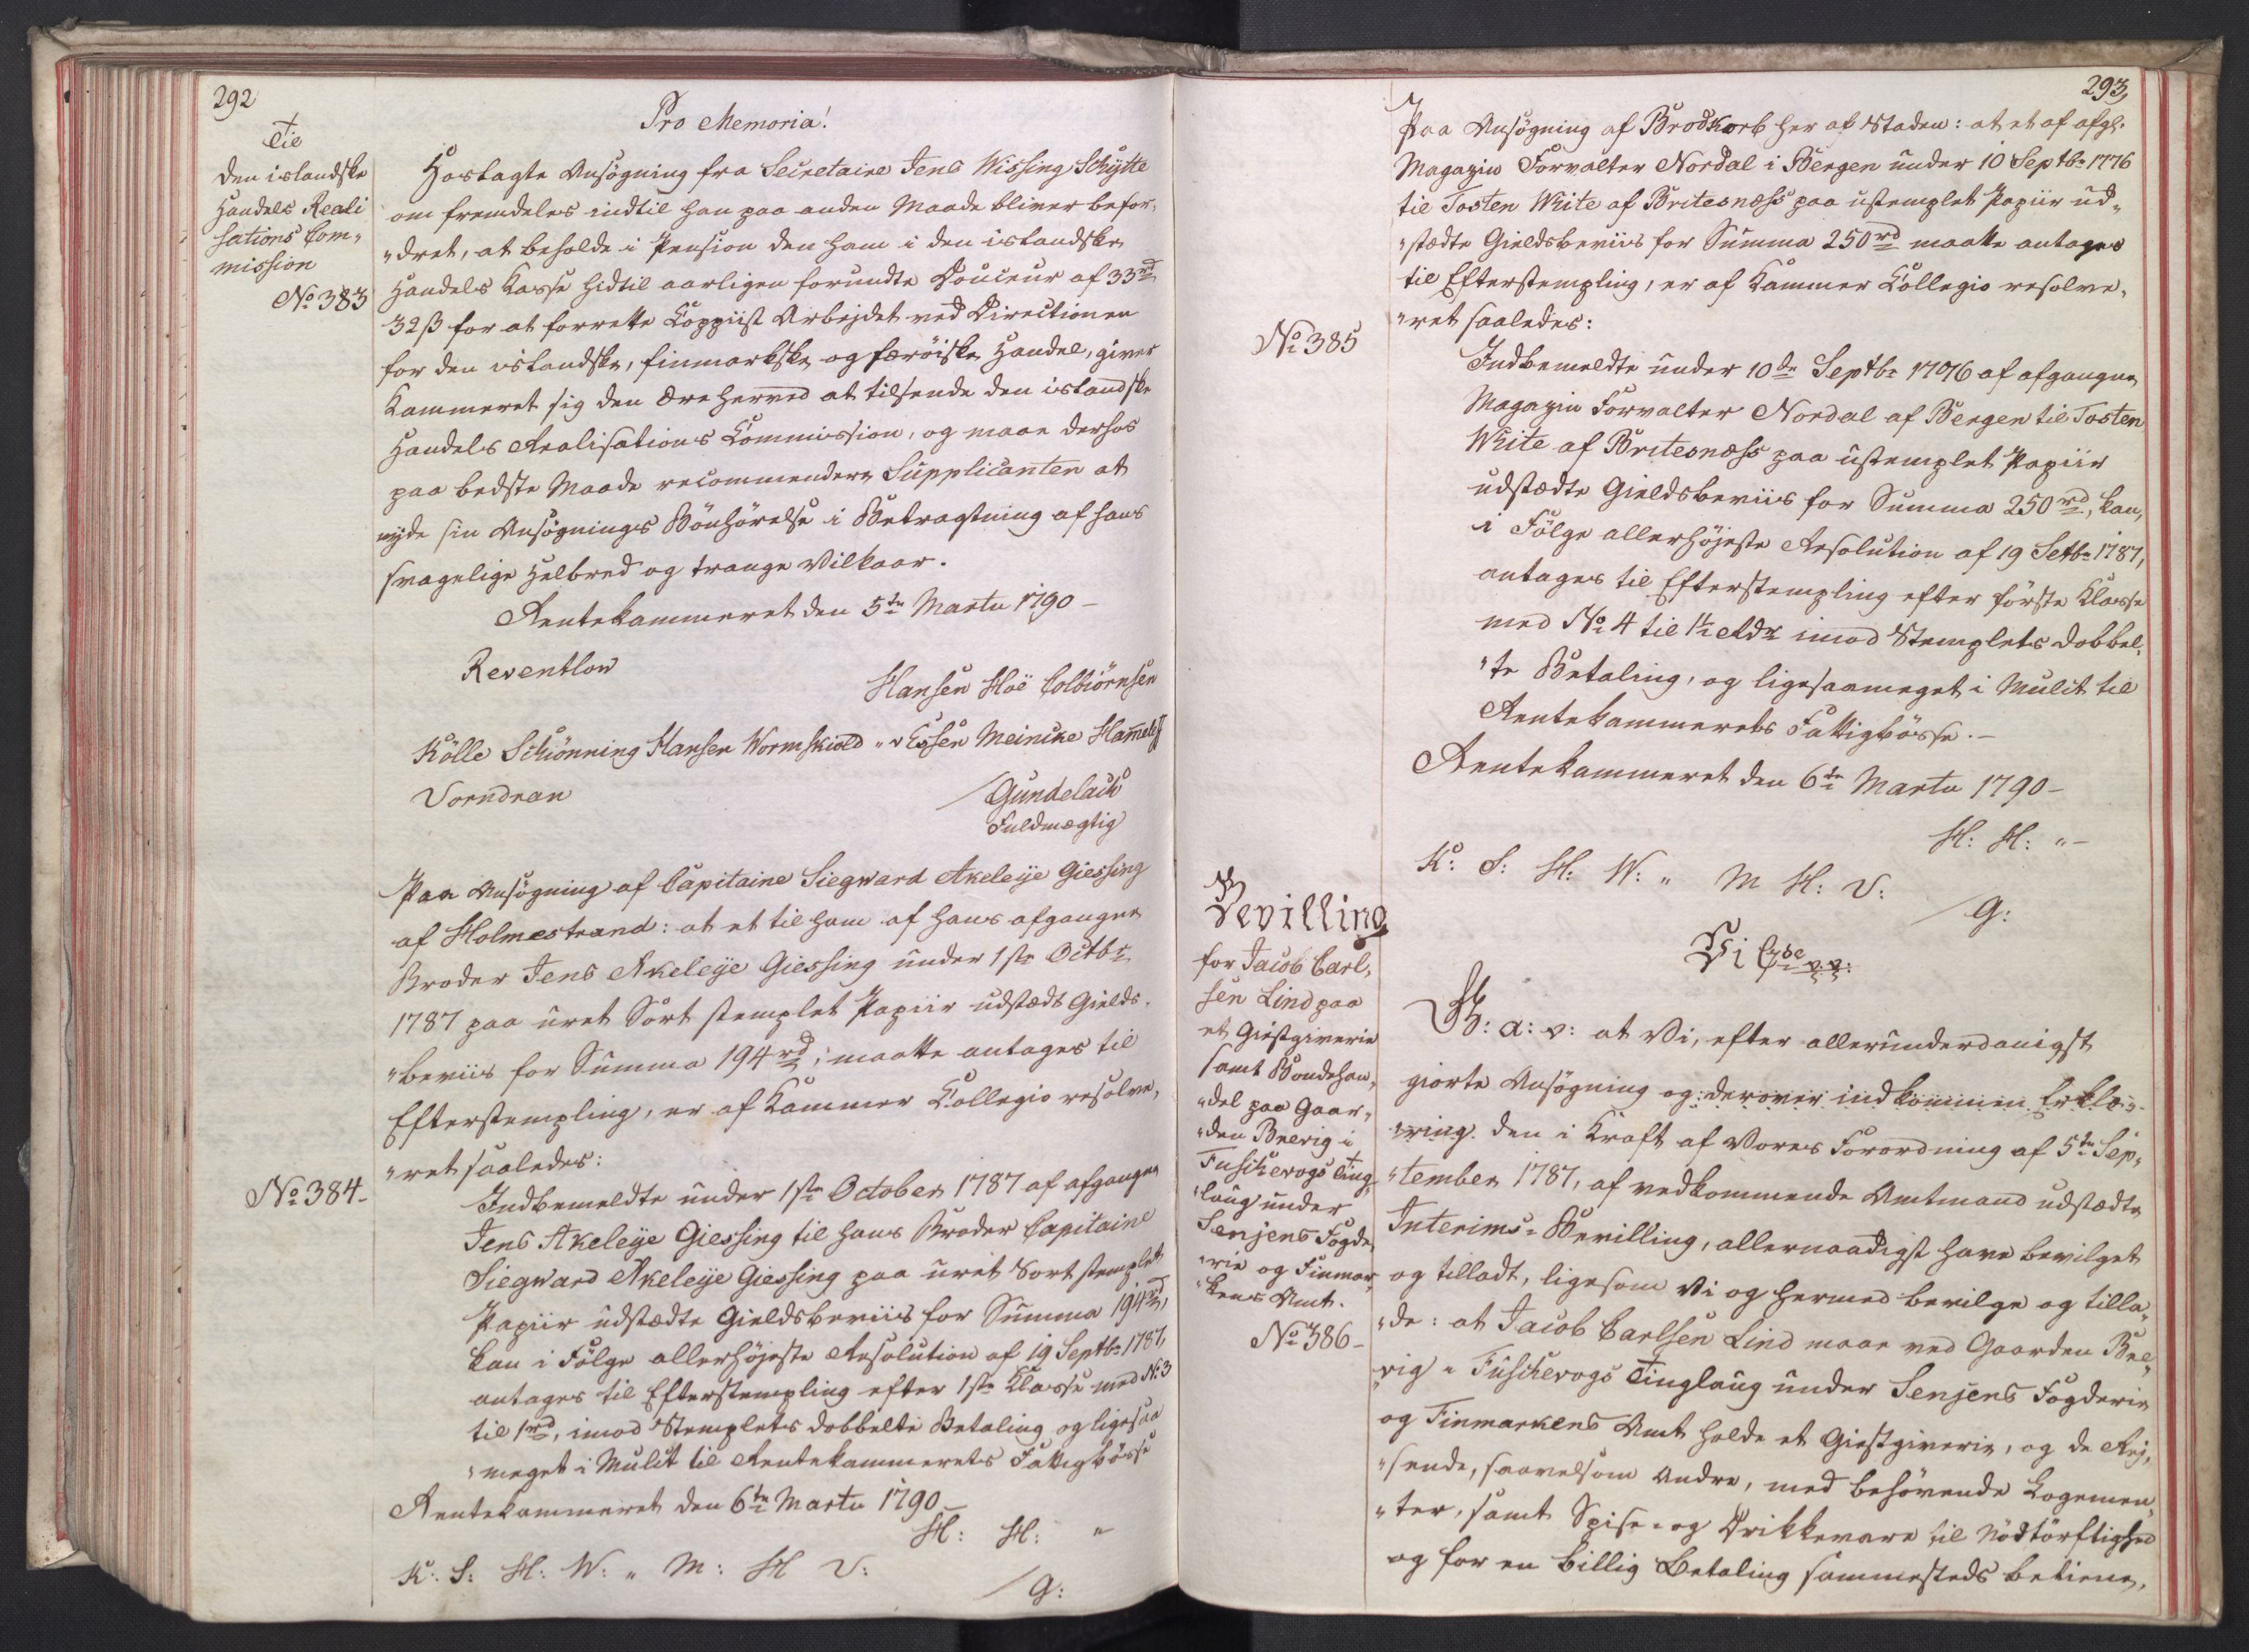 292
Til
den islandske
Handels Reali
sations Com„
mission
No 383
Pro Memoria!
Hoslagte Ansøgning fra Secretaire Jens Wissing Schytte
om fremdeles indtil han paa anden Maade bliver befor„
„dret, at beholde i Pension den ham i den islandske
Handels Kasse hidtil aarligen forundte Douceur af 33 rd
32 ß for at forrette Coppiist Arbejdet ved Directionen
for den islandske, finmarkske og færöiske Handel, giver
Kammeret sig den Ære herved at tilsende den islandske
Handels Realisations Commission, og maae derhos
paa bedste Maade recommendere Supplicanten at
nyde sin Ansøgnings Bönhörelse i Betragtning af hans
svagelige Helbred og trange Vilkaar.
Rentekammeret den 5te Martii 1790 –
Reventlow
Hansen Hoë Colbiörnsen
Kölle Schiönning Hansen Wormskiold „ v Essen Meincke Hameleff
Vorndran
/Gundelach
Fuldmægtig
Paa Ansøgning af Capitaine Siegward Akeleije Giessing
af Holmestrand: at et til ham af hans afgangne
Broder Jens Akeleije Giessing under 1ste Octbr
1787 paa uret Sort stemplet Papiir udstædt Gields„
„beviis for Summa 194 rd; maatte antages til
Efterstempling, er af Kammer Collegio resolve„
„ret saaledes:
No 384 –
Indbemeldte under 1ste October 1787 af afgangne
Jens Akeleije Giessing til hans Broder Capitaine
Siegward Akeleije Giessing paa uret Sort stemplet
Papiir udstædte Gieldsbeviis for Summa 194 rd,
kan i Fölge allerhöjeste Resolution af 19 Septbr 1787,
antages til Efterstempling efter 1ste Klasse med No 3
til 1 rd, imod Stemplets dobbelte Betaling og ligesaa
„meget i Mulct til Rentekammerets Fattigbösse
Rentekammeret den 6te Martii 1790 –
H: H: „
K: S: H: W: „ M: H V:
/G:
293,
Paa Ansøgning af Brodkorb her af Staden: at et af afg.
Magazin Forvalter Nordal i Bergen under 10 Septbr 1776
til Tosten White af Britesnæss paa ustemplet Papiir ud„
„stædte Gieldsbeviis for Summa 250 rd maatte antages
til Efterstempling, er af Kammer Collegio resolve„
„ret saaledes:
No 385
Indbemeldte under 10de Septbr 1776 af afgangne
Magazin Forvalter Nordal af Bergen til Tosten
White af Britesnæss paa ustemplet Papiir
udstædte Gieldsbeviis for Summa 250 rd, kan,
i Fölge allerhöjeste Resolution af 19 Setbr 1787,
antages til Efterstempling efter förste Klasse
med No 4 til 1½ Rdr imod Stemplets dobbel„
„te Betaling, og ligesaameget i Mulct til
Rentekammerets Fattigbösse. –
Rentekammeret den 6te Martii 1790 –
H: H: „ –
K: S: H: W: „ M H: V:
/G:
Bevilling
for Jacob Carl„
sen Lind paa
et Giæstgiverie
samt Bondehan„
„del paa Gaar„
„den Brevig i
Fuskevogs Ting„
„laug under
Senjens Fogde„
„rie og Finmar„
„kens Amt.
No 386 –
Vi C 7de v: v:
G: a: v: at Vi, efter allerunderdanigst
giorte Ansøgning og derover indkommen Erklæ„
„ring den i Kraft af Vores Forordning af 5te Sep„
„tember 1787, af vedkommende Amtmand udstædte
Interims-Bevilling, allernaadigst have bevilget
og tilladt, ligesom Vi og hermed bevilge og tilla„
„de: at Jacob Carlsen Lind maae ved Gaarden Bre„
„vig i Fuskevogs Tinglaug under Senjens Fogderie
og Finmarkens Amt holde et Giæstgiverie, og de Rej„
„sende, saavelsom Andre, med behövende Logemen„
„ter, samt Spise- og Drikkevare til Nödtörftighed
og for en billig Betaling sammesteds betiene,